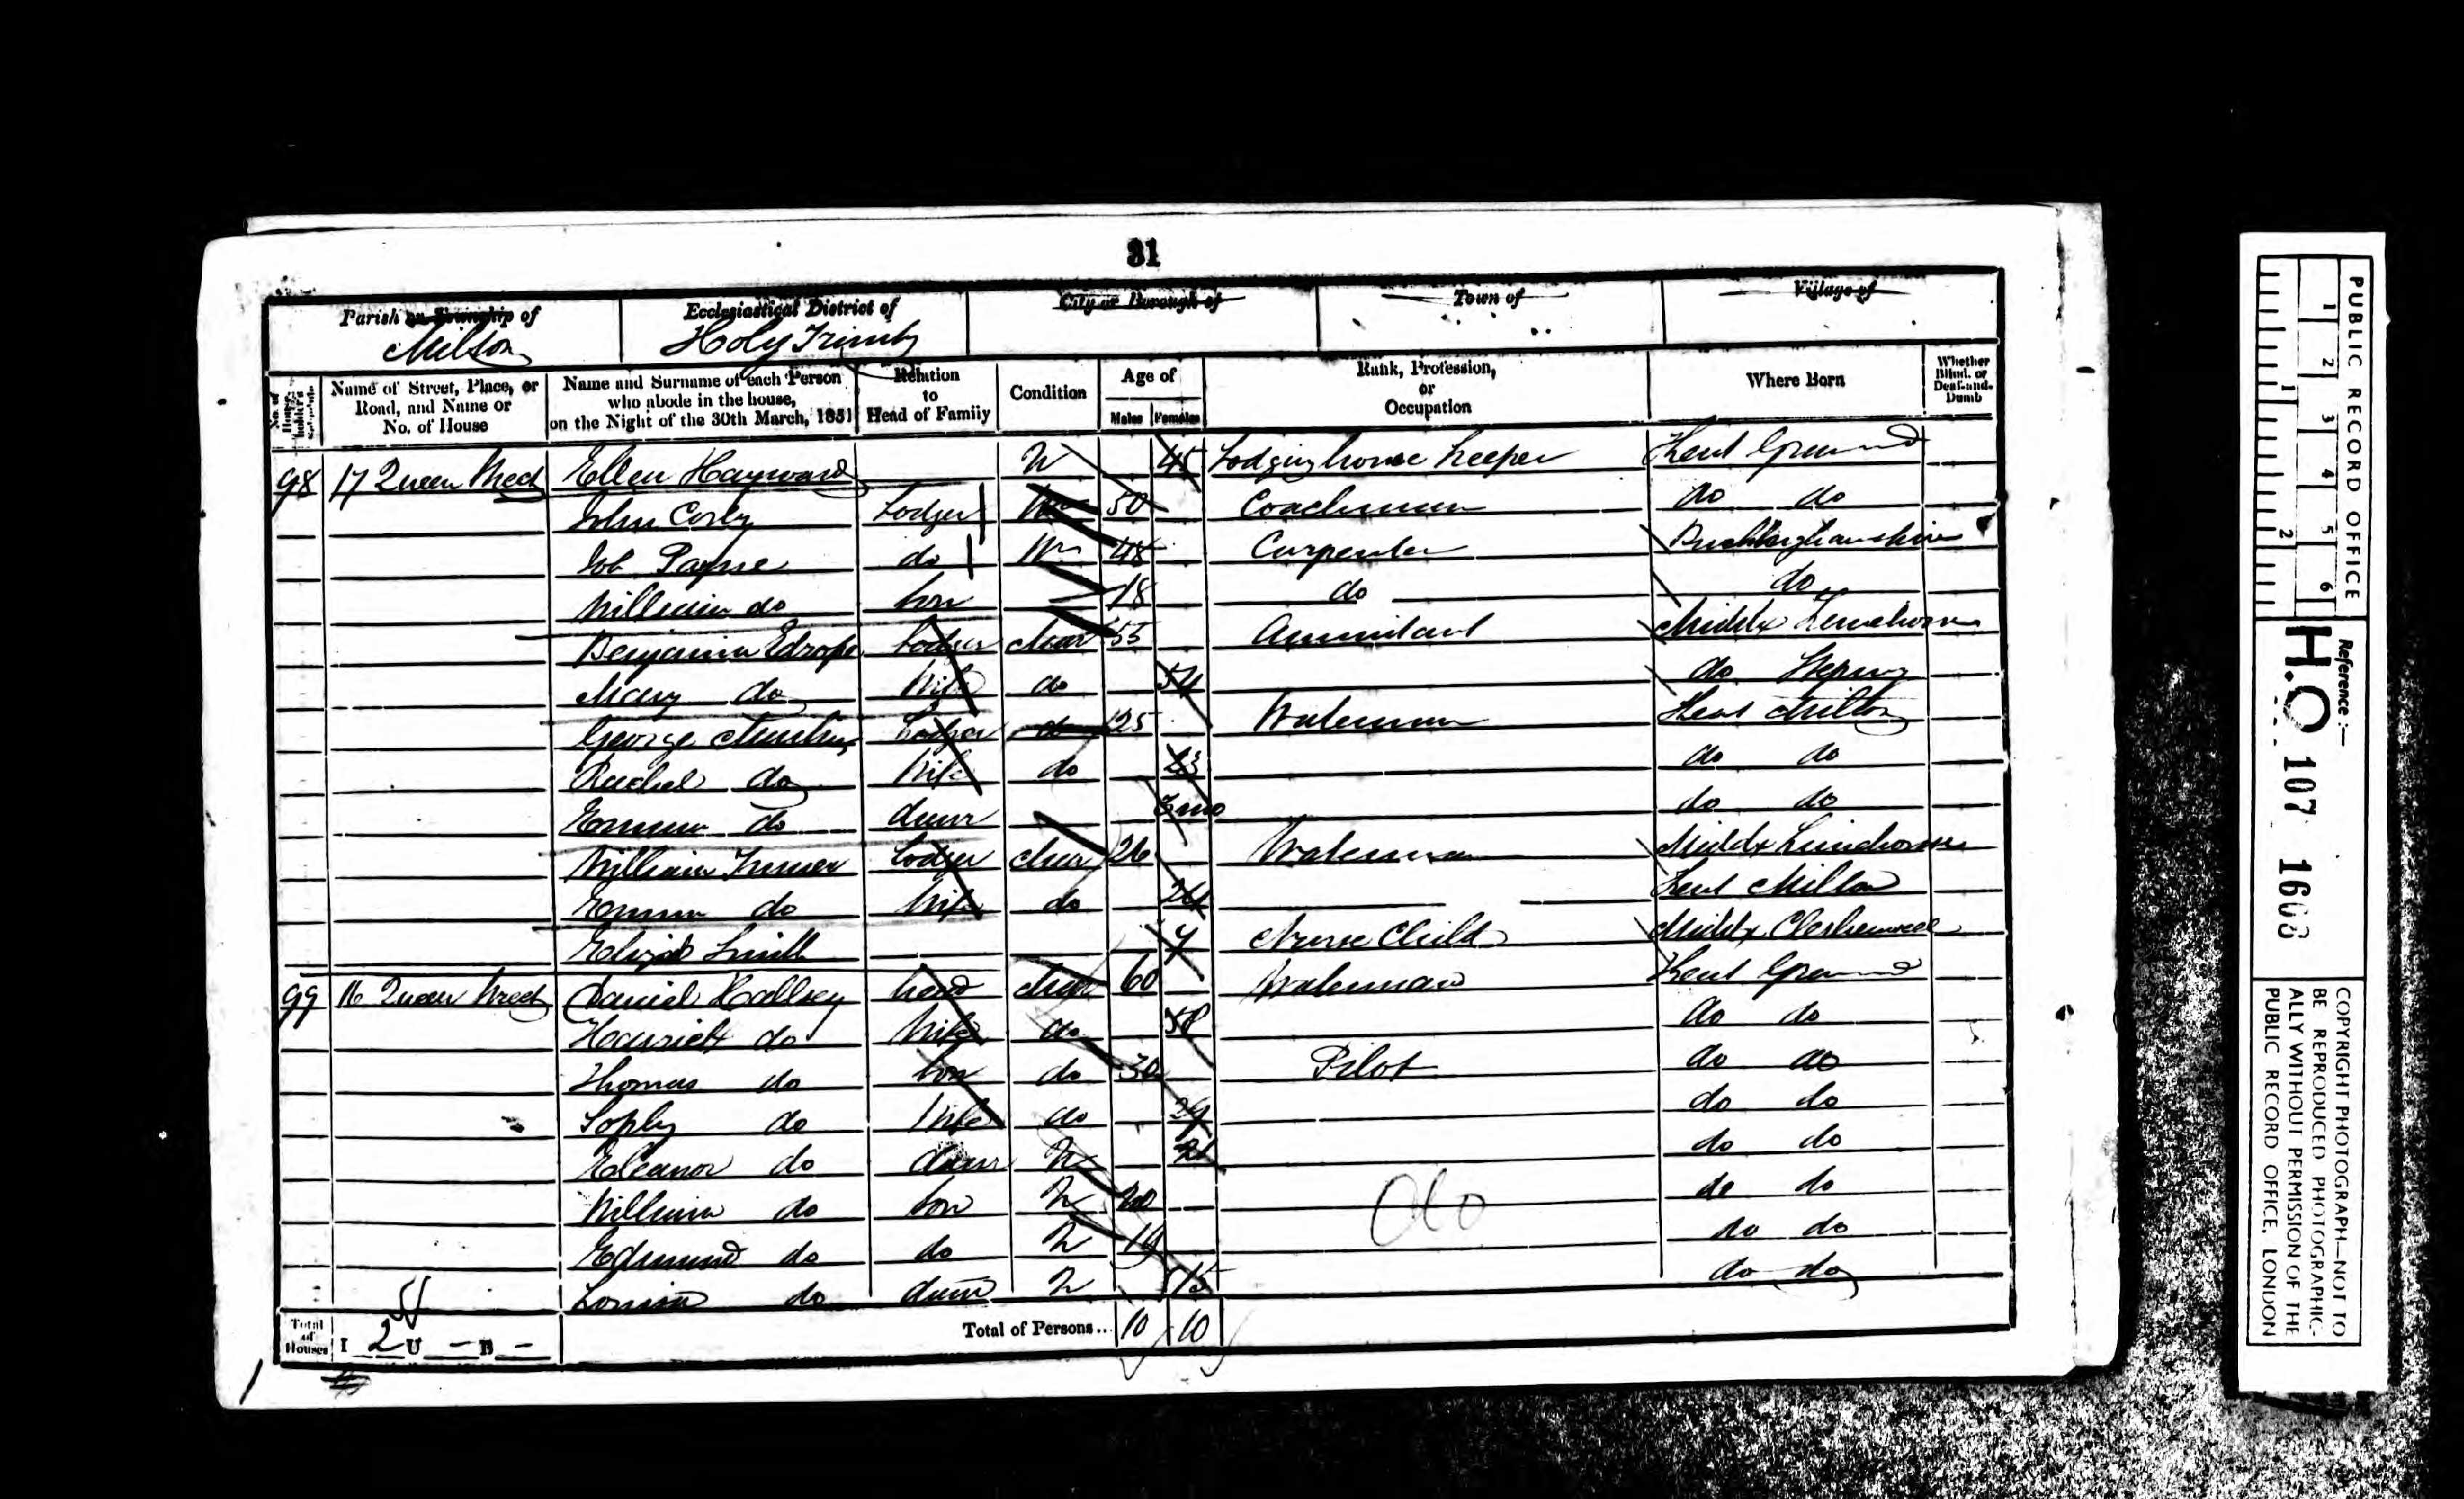 31
Parish or Township of Ecclesiastical District of City or Borough of Town of Village of
Milton Holy Trinity
No. of House-holder's Schedule Name of Street, Place, or Road, and Name or No. of House Name and Surname of each Person who abode in the house, on the Night of the 30th March, 1851 Relation to Head of Family Condition Age of Males Females Rank, Profession, or Occupation Where Born Whether Blind, or Deaf-and-Dumb
98 17 Queen Street Ellen Hayward 45 Lodging house keeper Kent
John Lodger 50 Coachman do do
Job Payne do 48 Carpenter Buckinghamshire
William do Son 18 do do
Benjamin Lodger Mar 55 Middx Limehouse
Mary do Wife do 54 do
George Lodger do 25 Waterman Kent Milton
Rachel do Wife do 23 do do
Emma do Daur 3 mo do do
William Lodger Mar 26 Waterman Middx Limehouse
Emma do Wife do 24 Kent Milton
Smith Nurse Child Middx Clerkenwell
99 16 Queen Street Daniel Hallsey Head Mar 60 Waterman Kent
do Wife do 58 do do
Thomas do Son do 30 Pilot do do
Sophy do Wife do do do
Eleanor do Daur do do
William do Son 20 do do
Edmund do do 19 do do
Louisa do Daur 15 do do
do
Total of Houses I 2 U – B – Total of Persons... 10 10
PUBLIC RECORD OFFICE
1 2 3 4 5 6
1 2
Reference :-
H.O 107 1608
COPYRIGHT PHOTOGRAPH—NOT TO
BE REPRODUCED PHOTOGRAPHIC-
ALLY WITHOUT PERMISSION OF THE
PUBLIC RECORD OFFICE, LONDON